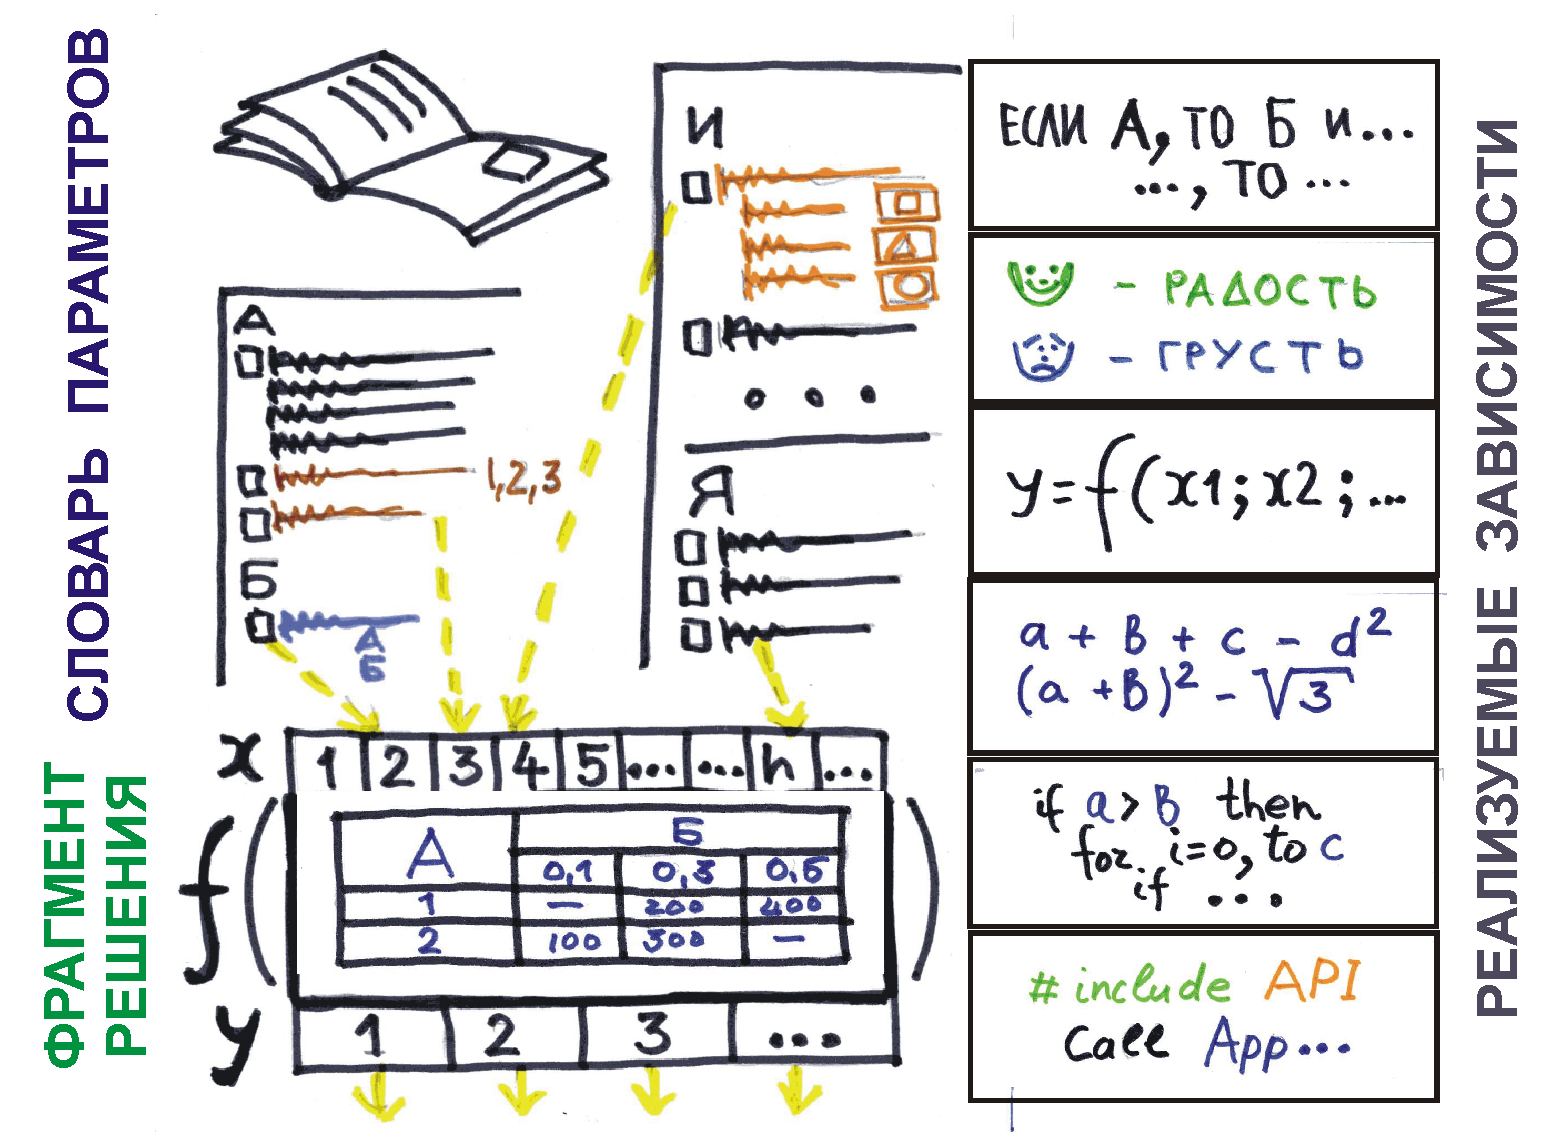 СЛОВАРЬ ПАРАМЕТРОВ
ФРАГМЕНТ
РЕШЕНИЯ
А
1,2,3
Б
А
Б
И
Я
x 1 2 3 4 5 ... ... n ...
f (
А Б
0,1 0,3 0,5
1 — 200 400
2 100 300 —
)
y 1 2 3 ...
ЕСЛИ А, ТО Б и...
..., ТО ...
- РАДОСТЬ
- ГРУСТЬ
y=f(x1; x2; ...
a + B + c - d²
(a + B)² - √3
if a > B then
for i=0, to c
if ...
# include API
Call App...
РЕАЛИЗУЕМЫЕ ЗАВИСИМОСТИ